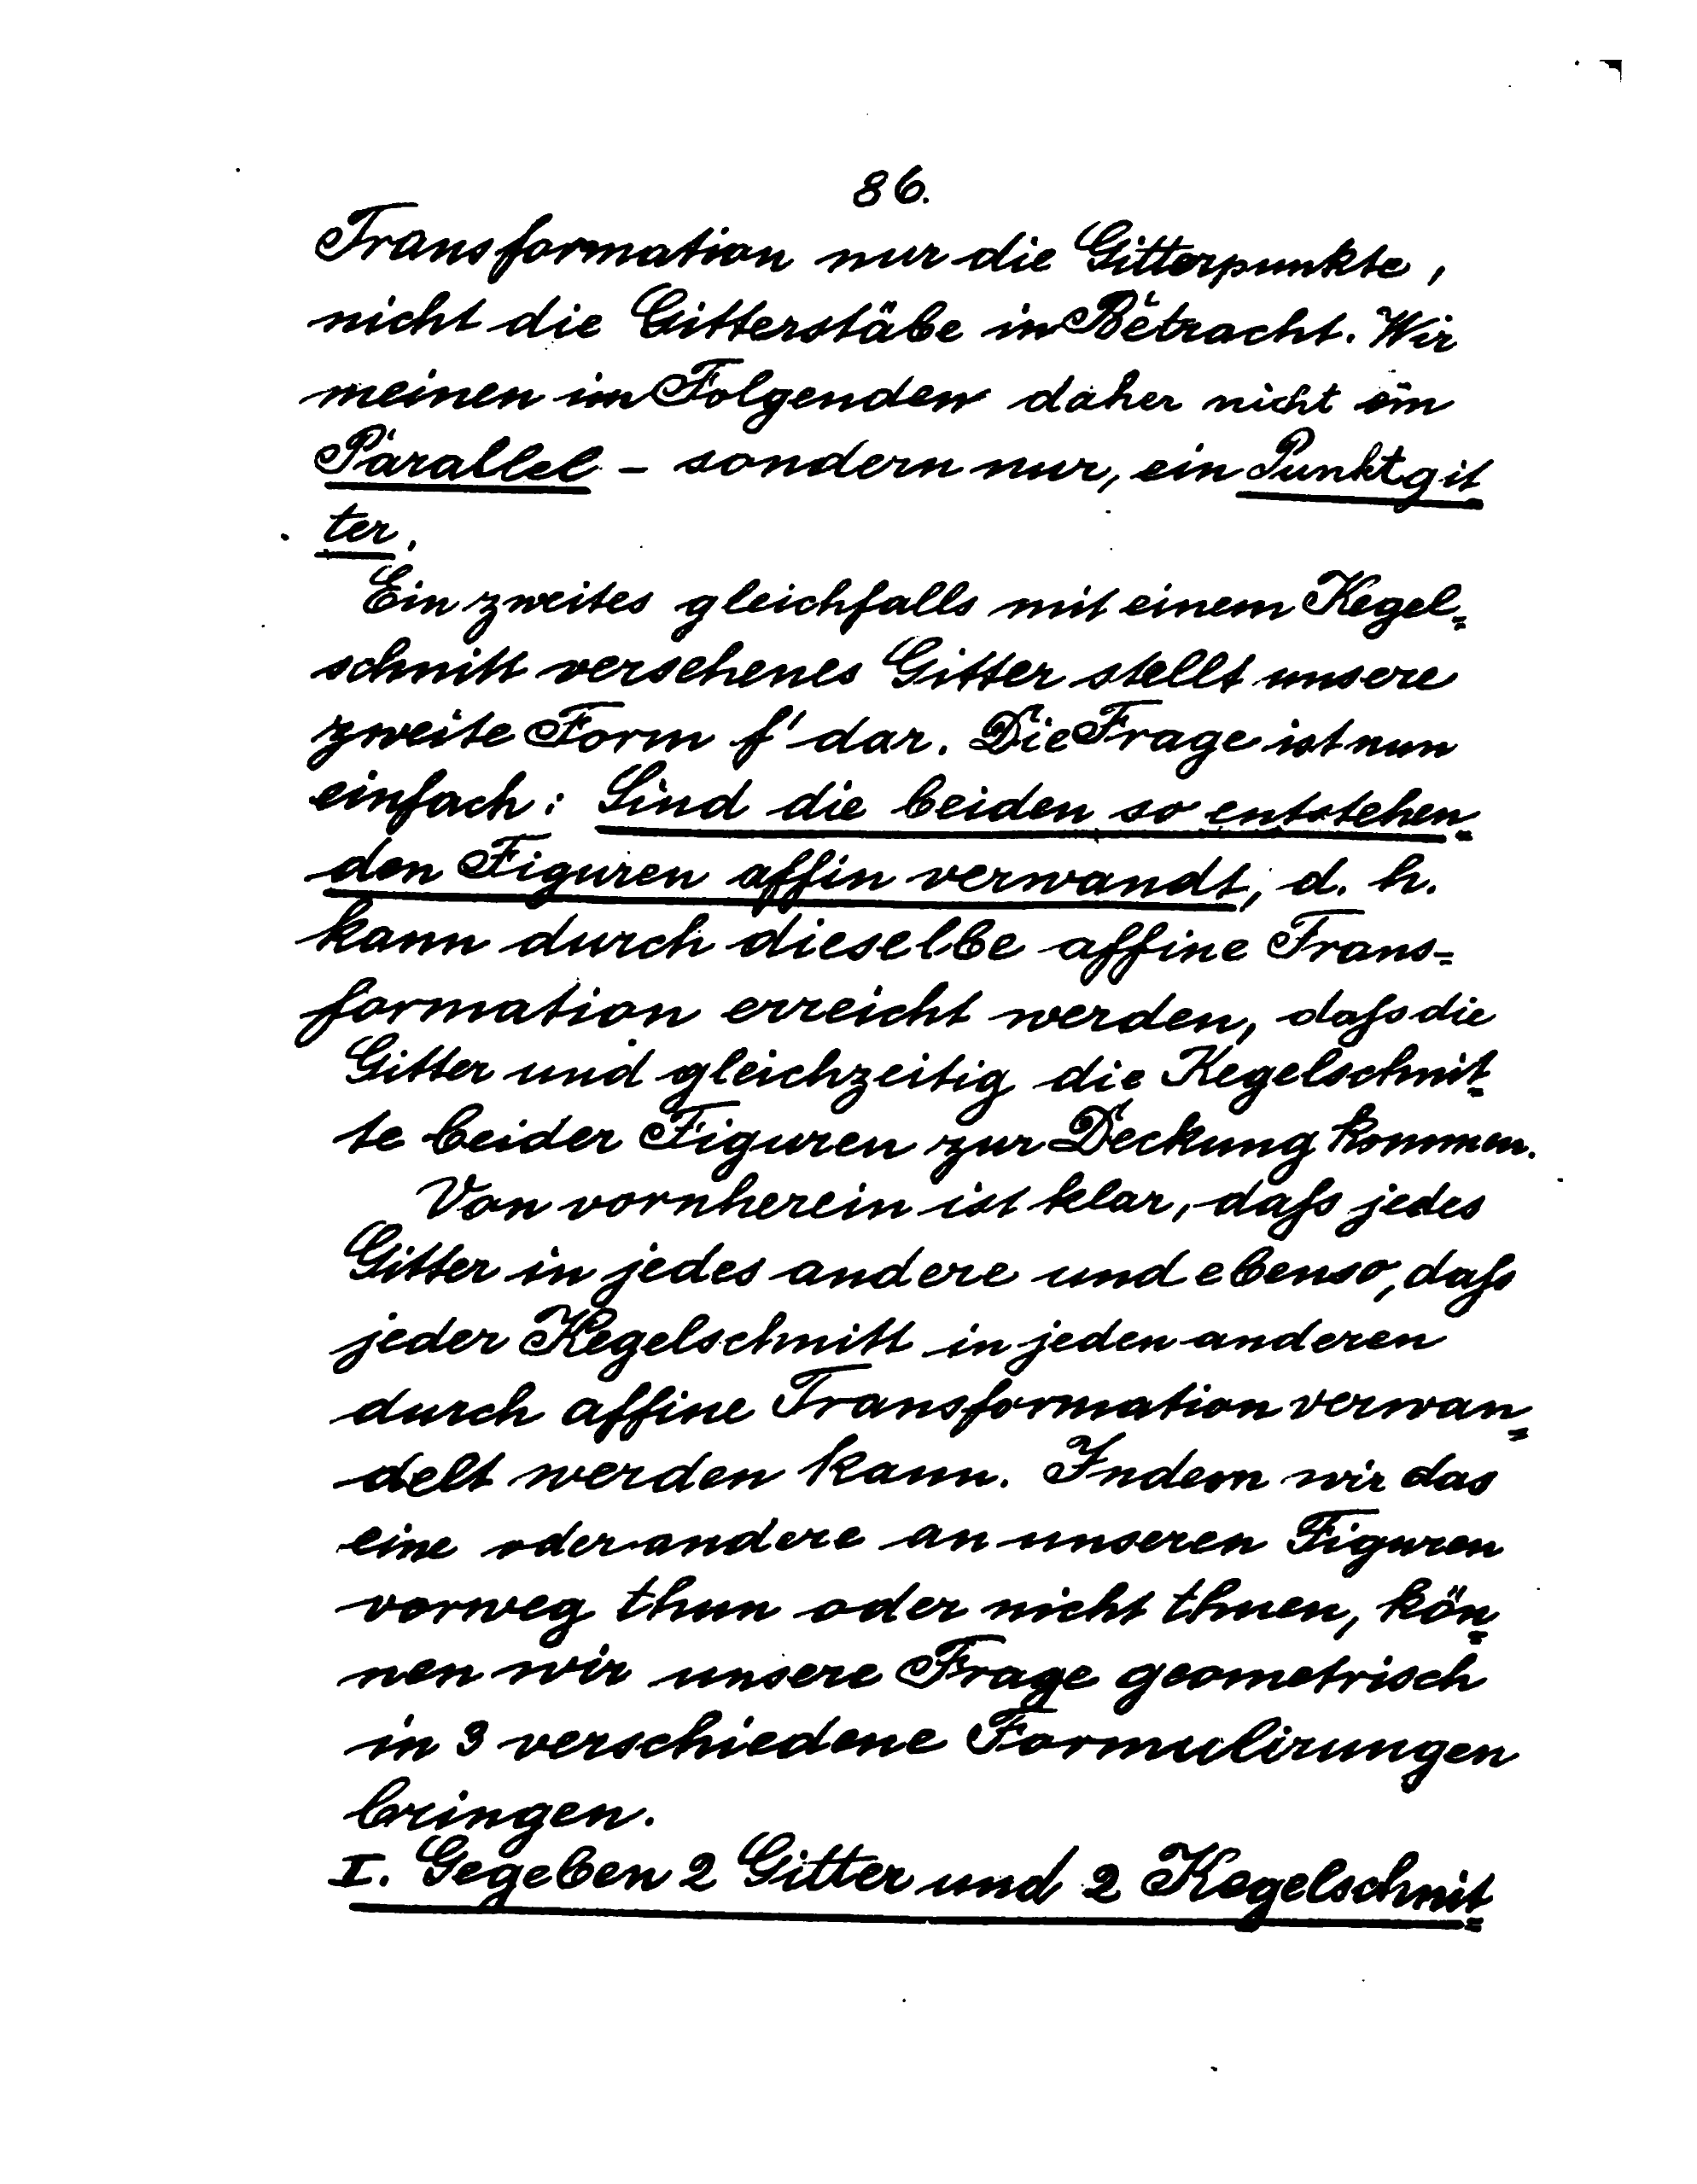 86.
Transformation nur die Gitterpunkte,
nicht die Gitterstäbe in Betracht. Wir
meinen im Folgenden daher nicht ein
Parallel - sondern nur, ein Punktgit
ter.
Ein zweites gleichfalls mit einem Kegel=
schnitt versehenes Gitter stellt unsere
zweite Form f' dar. Die Frage ist nun
einfach: Sind die beiden so entstehen=
den Figuren affin verwandt, d. h.
kann durch dieselbe affine Trans=
formation erreicht werden, dafs die
Gitter und gleichzeitig die Kegelschnit=
te beider Figuren zur Deckung kommen.
Von vornherein ist klar, dafs jedes
Gitter in jedes andere und ebenso, dafs
jeder Kegelschnitt in jeden anderen
durch affine Transformation verwan=
delt werden kann. Indem wir das
eine oder andere an unseren Figuren
vorweg thun oder nicht thuen, kön=
nen wir unsere Frage geometrisch
in 3 verschiedene Formulirungen
bringen.
I. Gegeben 2 Gitter und 2 Kegelschnit=